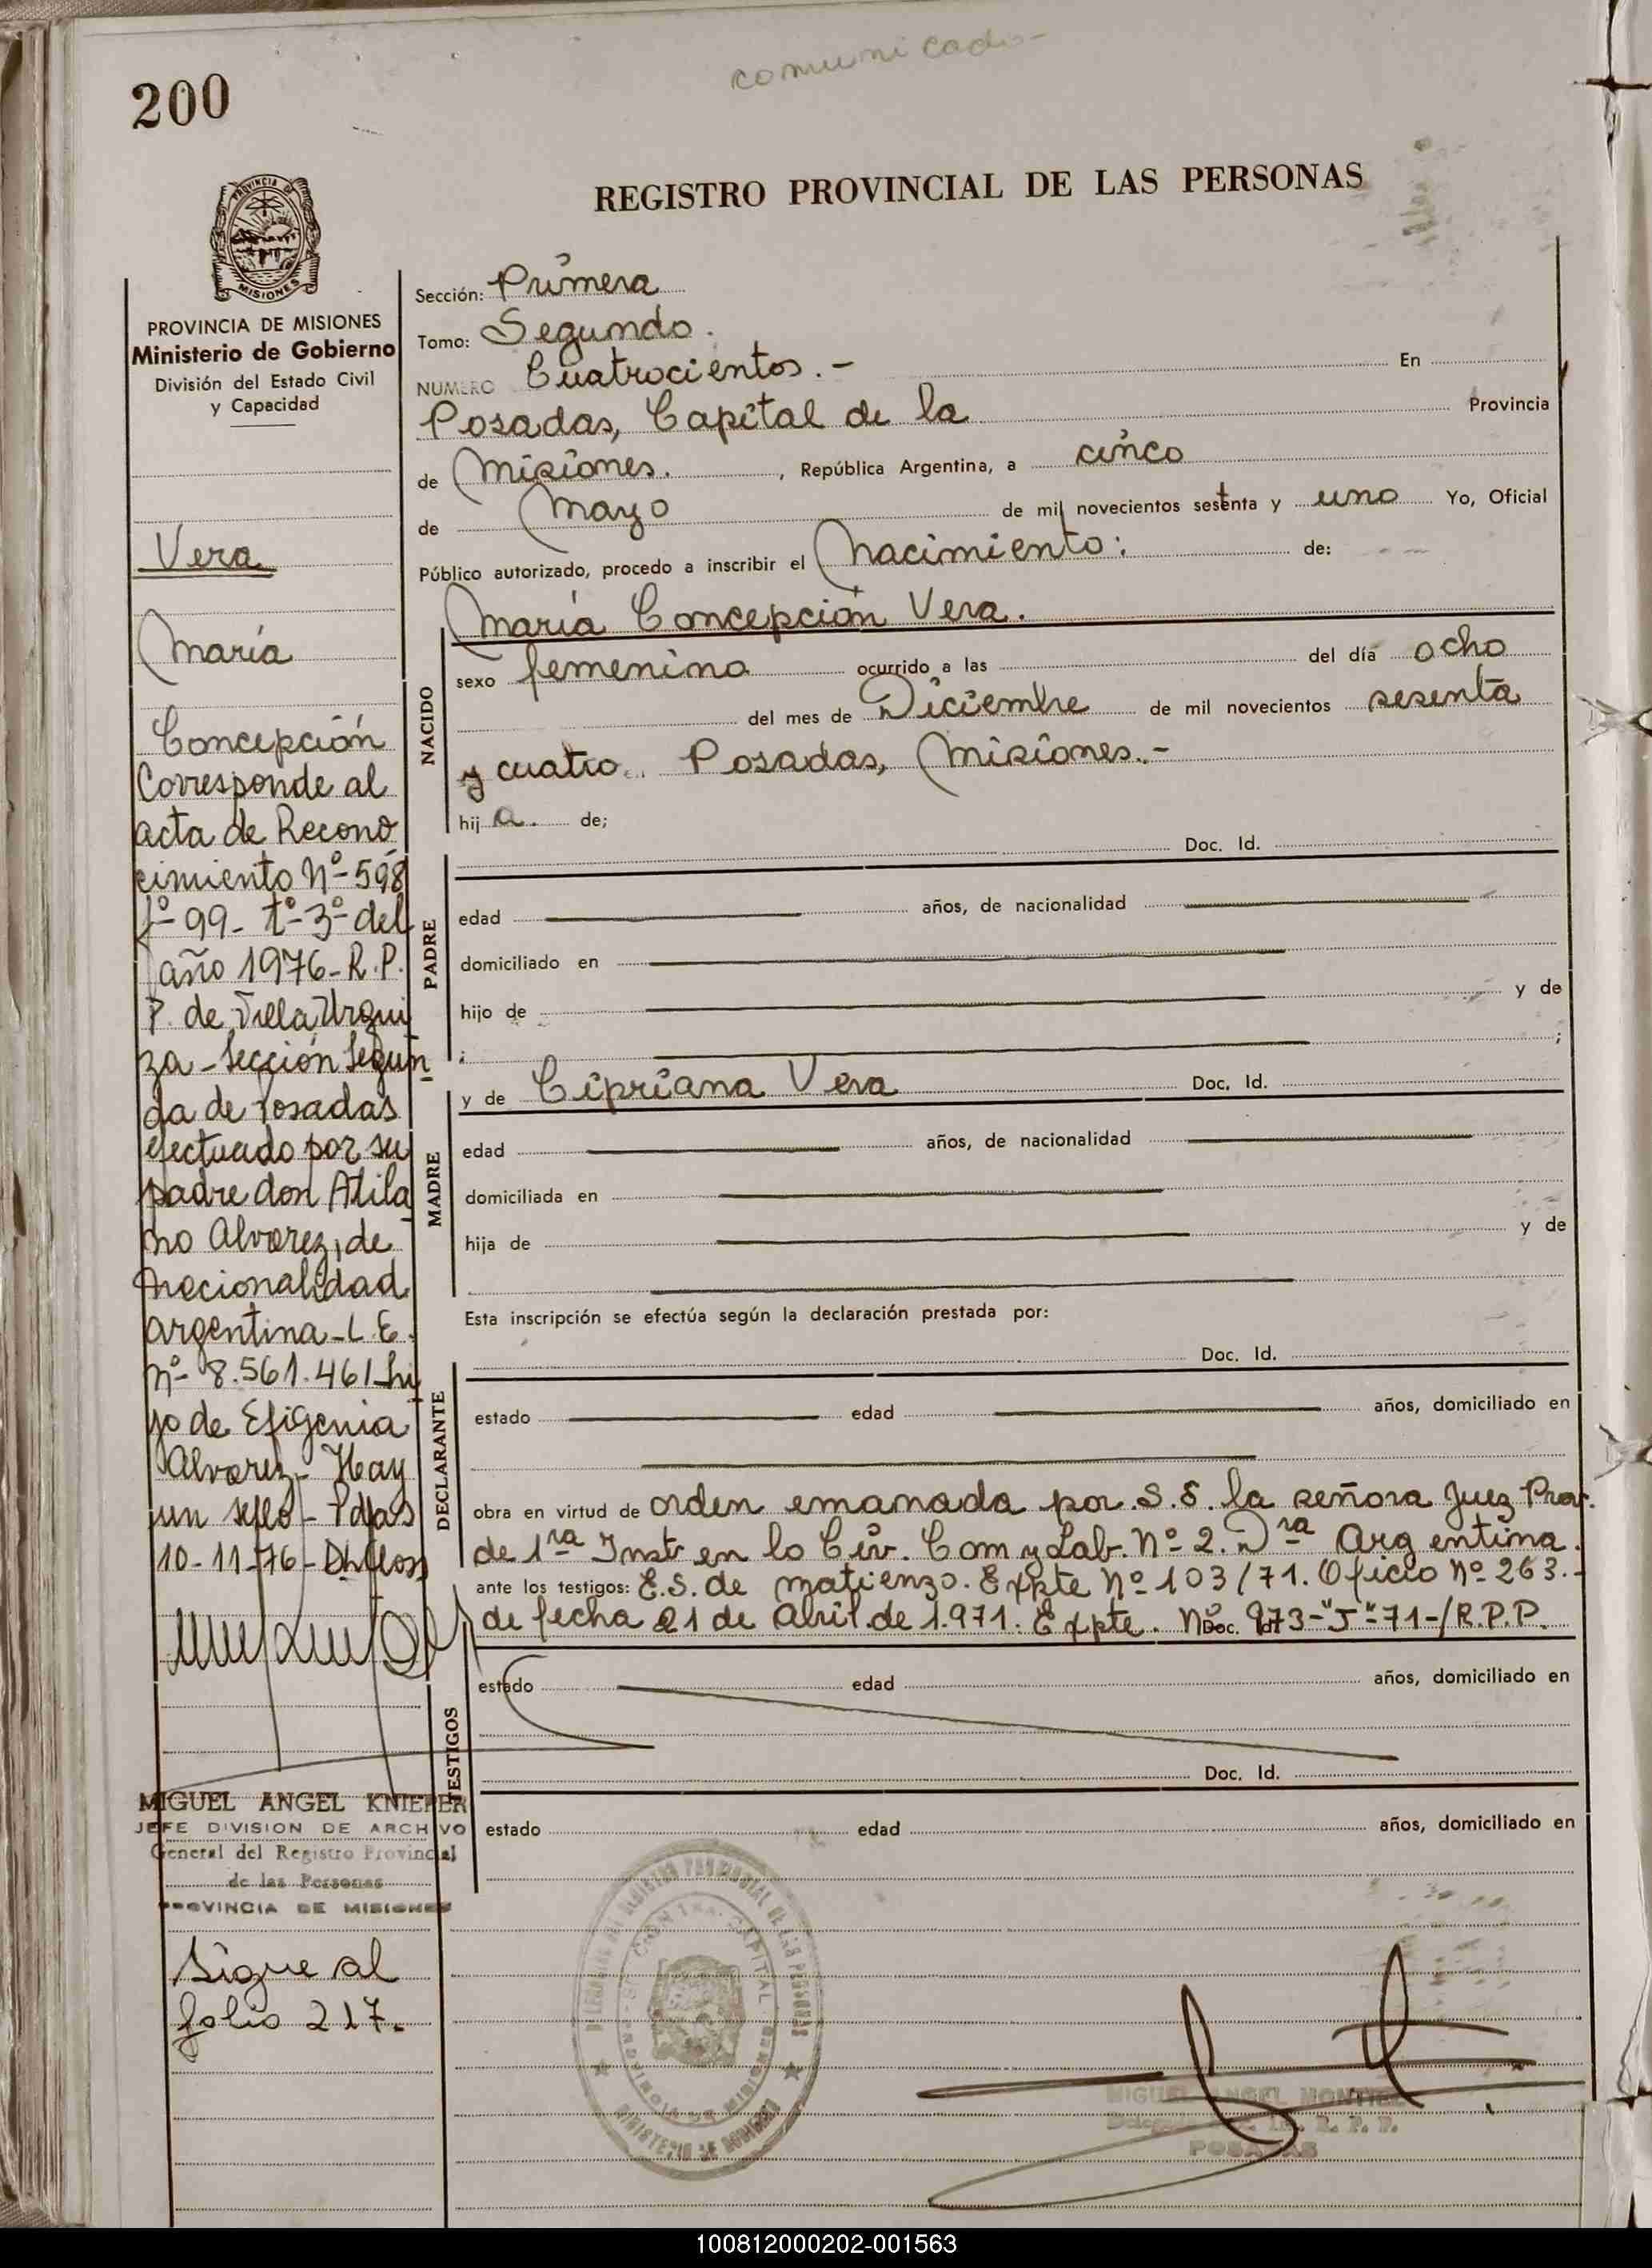 comunicado-
200
REGISTRO PROVINCIAL DE LAS PERSONAS
PROVINCIA DE
MISIONES
PROVINCIA DE MISIONES
Ministerio de Gobierno
División del Estado Civil
y Capacidad
Vera
María
Concepción
Corresponde al
acta de Recono
cimiento Nº-598
fº-99-tº-3º-del
año 1976-R.P.
P. de Villa Urqui
za-Sección Segun
da de Posadas
efectuado por su
padre don Atila
no Alvarez, de
nacionalidad
argentina-L.E.
Nº-8.561.461-hi
jo de Efigenia
Alvarez-Hay
un sello-Pdas
10-11-76-
MIGUEL ANGEL KNIEPER
JEFE DIVISION DE ARCHIVO
General del Registro Provincial
de las Personas
PROVINCIA DE MISIONES
Sigue al
folio 217.
Sección: Primera
Tomo: Segundo.
NUMERO Cuatrocientos.- En
Posadas, Capital de la Provincia
de Misiones. , República Argentina, a cinco
de Mayo de mil novecientos setenta y uno Yo, Oficial
Público autorizado, procedo a inscribir el Nacimiento: de:
María Concepción Vera.
NACIDO
sexo femenino ocurrido a las del día ocho
del mes de Diciembre de mil novecientos sesenta
y cuatro. Posadas, Misiones.-
hij a. de;
Doc. Id.
PADRE
edad años, de nacionalidad
domiciliado en
hijo de y de
;
MADRE
y de Cipriana Vera Doc. Id.
edad años, de nacionalidad
domiciliada en
hija de y de
Esta inscripción se efectúa según la declaración prestada por:
Doc. Id.
DECLARANTE
estado edad años, domiciliado en
obra en virtud de orden emanada por S.S. la señora Juez Prov.
de 1ra Inst en lo Civ. Com y Lab. Nº-2. Dra Argentina.
ante los testigos: E.S. de Matienzo. Expte Nº-103/71. Oficio Nº-263.-
de fecha 21 de Abril de 1.971. Expte. Nº Doc. Id. 973-"J"-71-/R.P.P.
TESTIGOS
estado edad años, domiciliado en
Doc. Id.
estado edad años, domiciliado en
MINISTERIO DE GOBIERNO
MIGUEL ANGEL MONTIEL
R. P. P.
POSADAS
100812000202-001563